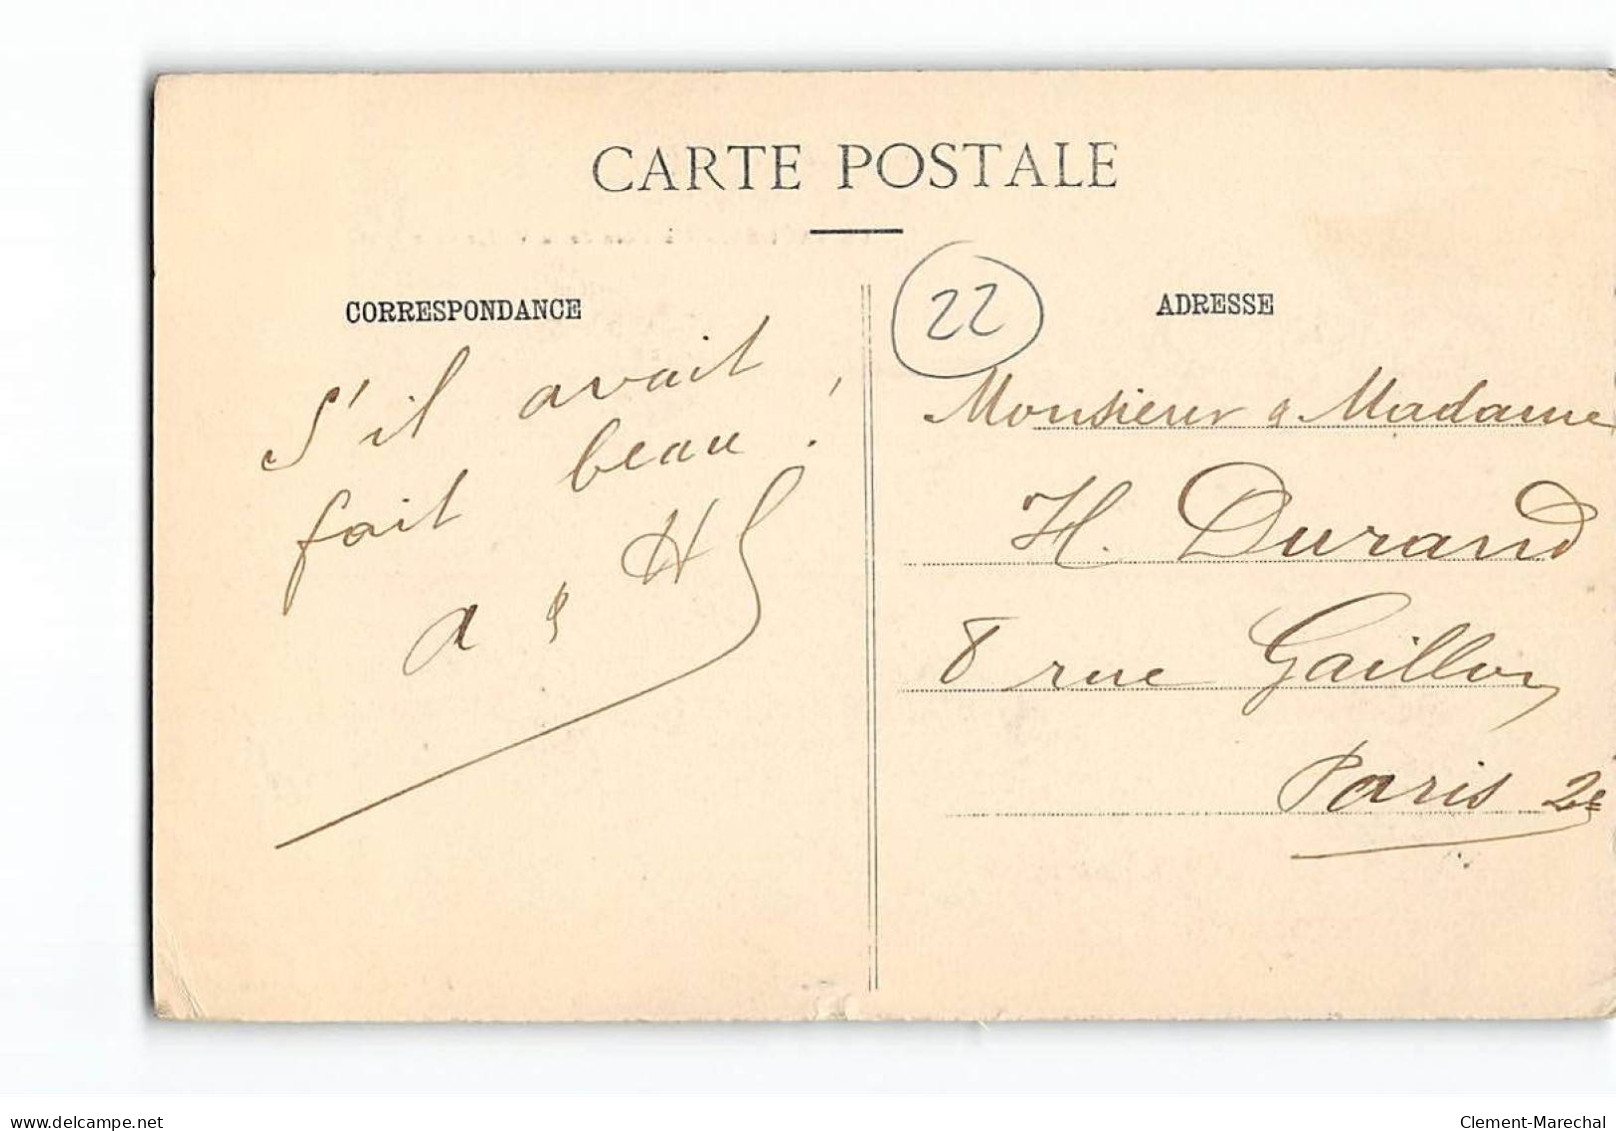 CARTE POSTALE
CORRESPONDANCE
S'il avait
fait beau !
a & H
22
ADRESSE
Monsieur & Madame
H. Durand
8 rue Gaillon
Paris 2e
www.delcampe.net
Clement-Marechal